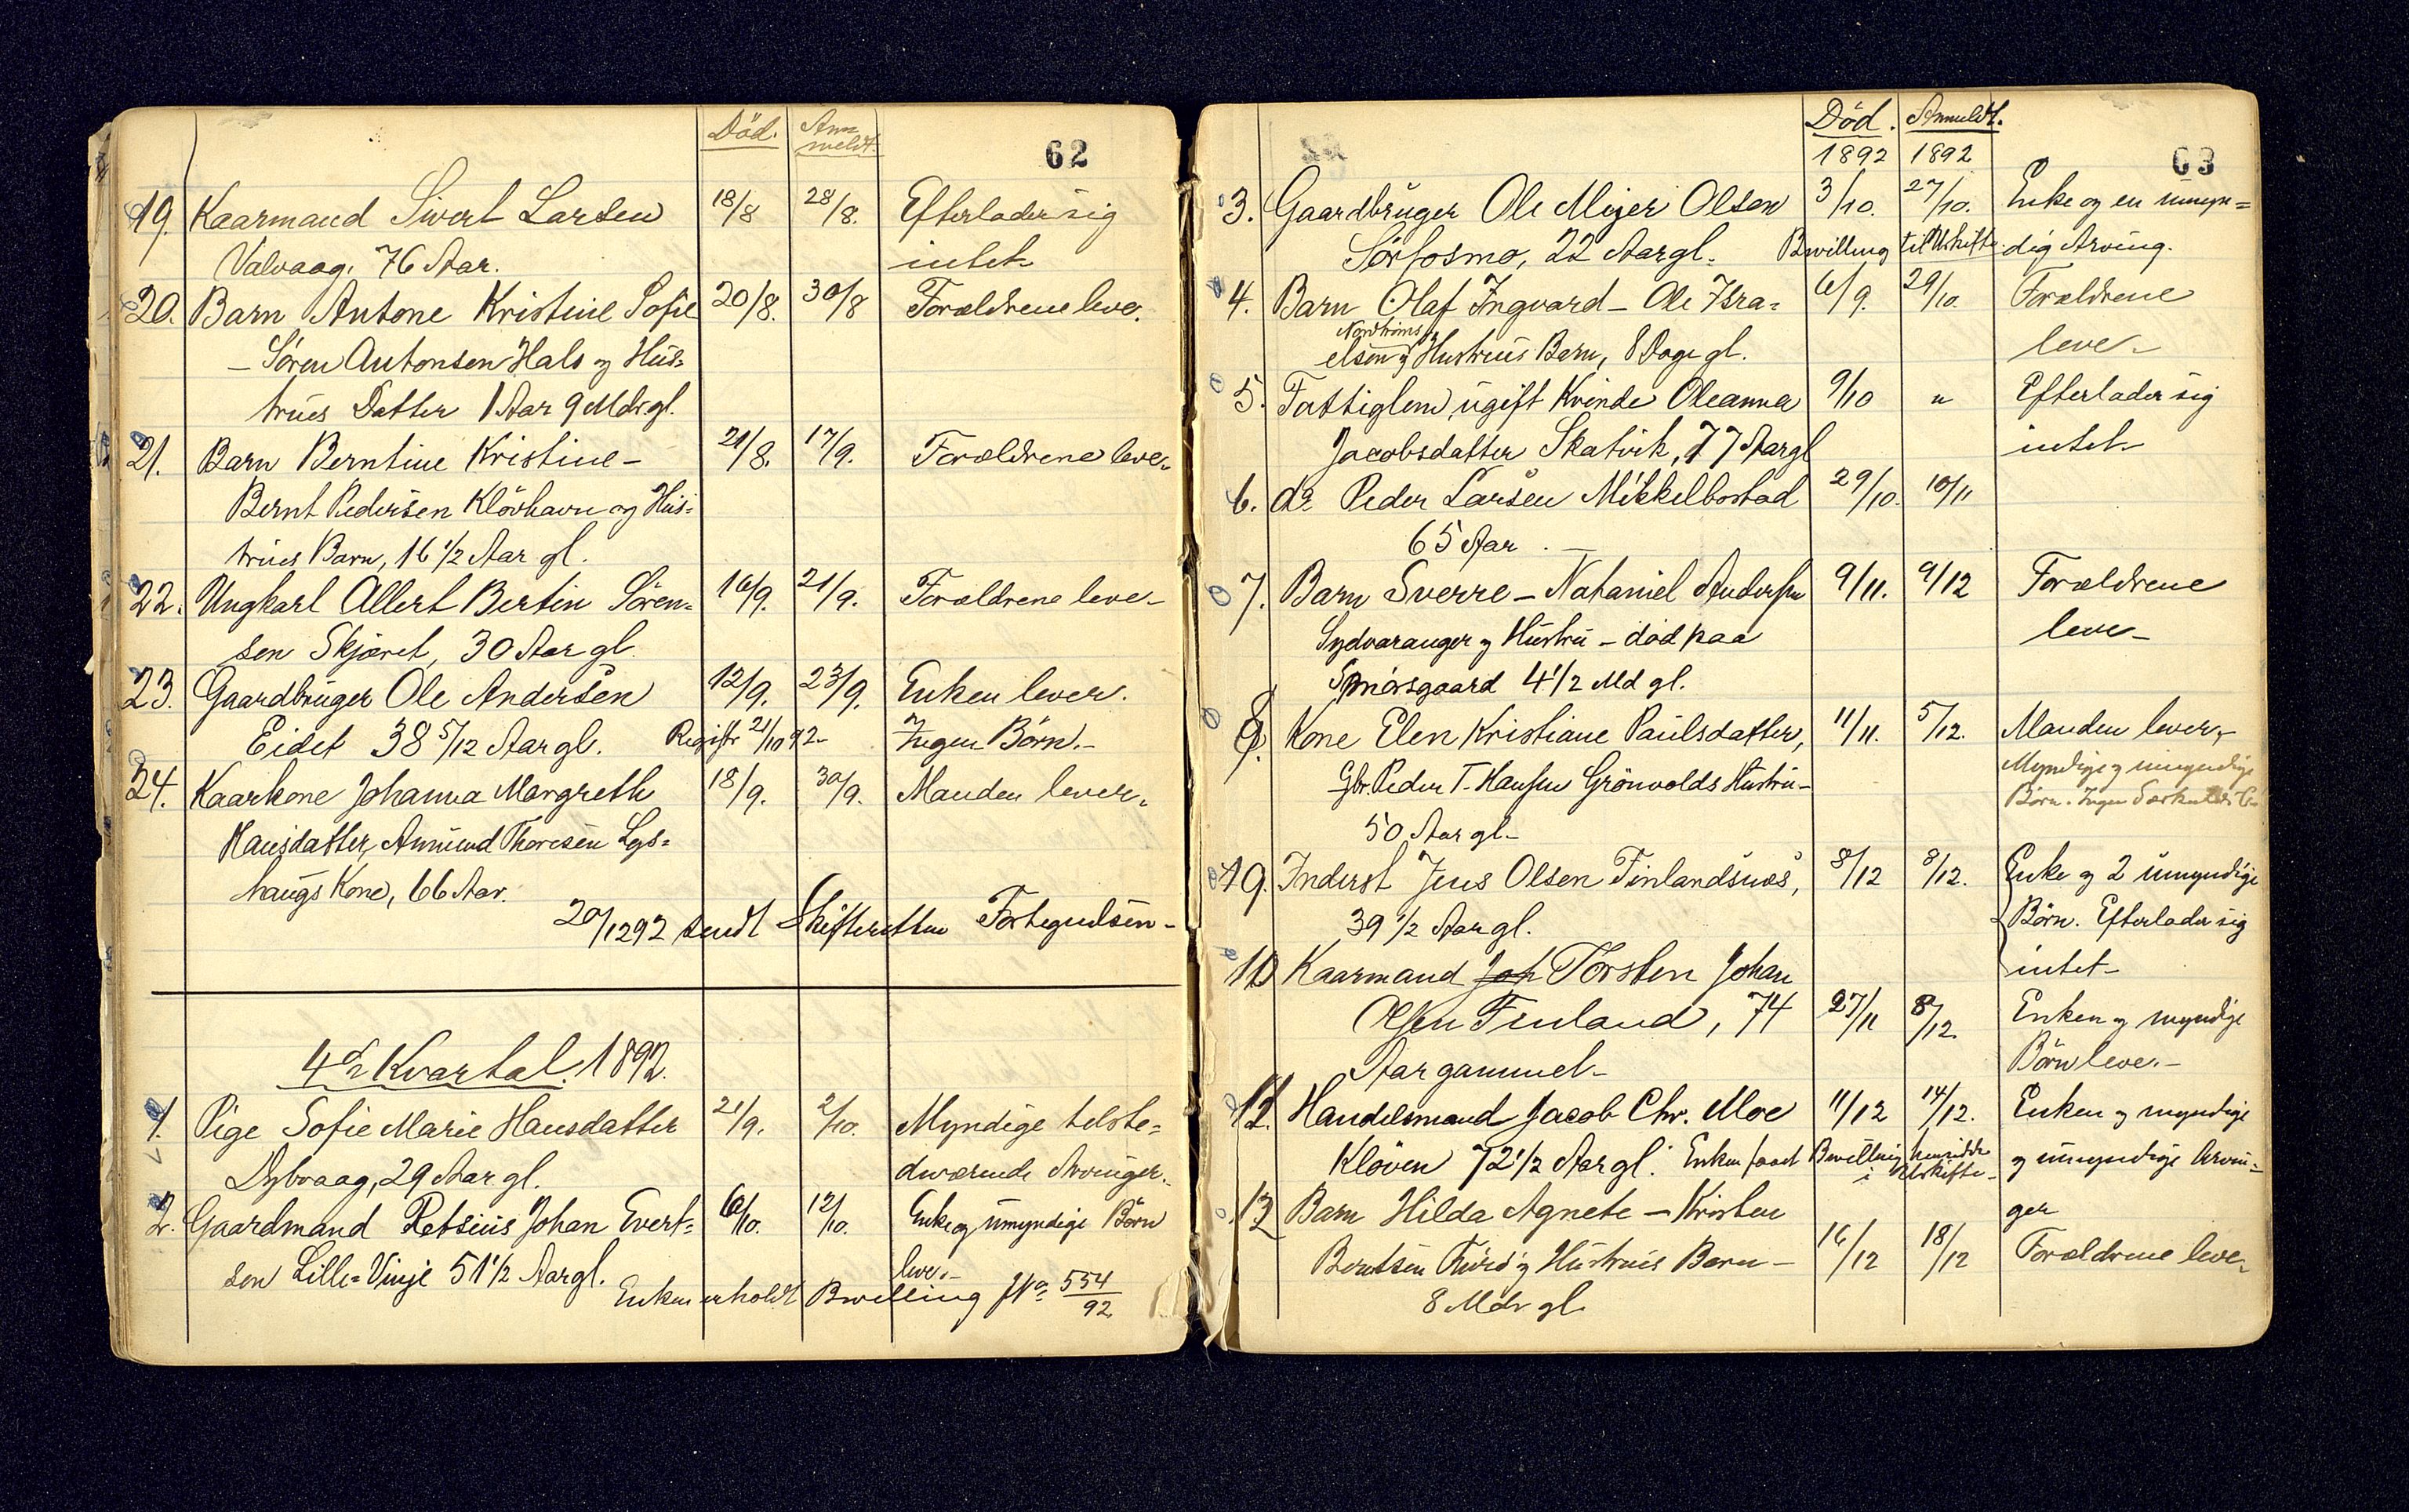 Död. An-
meldt.
62
19. Kaarmand Sivert Larsen 18/8 28/8. Efterlader sig
Valvaag. 76 Aar. intet
20. Barn Antone Kristine Sofie 20/8. 30/8 Forældrene leve.
- Sören Antonsen Hals og Hus-
trues Datter 1 Aar 9 Mdr. gl.
21. Barn Berntine Kristine - 21/8. 17/9. Forældrene leve.
Bernt Pedersen Klövhavn og Hus-
trues Barn, 16 1/2 Aar gl.
22. Ungkarl Allert Bertin Sören- 16/9. 21/9. Forældrene leve -
sen Skjæret, 30 Aar gl.
23. Gaardbruger Ole Andersen 12/9. 23/9. Enken lever.
Eidet 38 5/12 Aar gl. Registr 21/10 92 - Ingen Börn. -
24. Kaarkone Johanna Margreth 18/9. 30/9. Manden lever.
Hansdatter, Amund Thoresen Lys-
haugs Kone, 66 Aar.
20/12 92 sendt Skifteretten Fortegnelsen -
4de Kvartal. 1892.
1. Pige Sofie Marie Hansdatter 21/9. 2/10. Myndige tilste-
Dybvaag, 29 Aar gl. deværende Arvinger.
2. Gaardmand Retsius Johan Evert- 6/10. 12/10. Enke og umyndige Börn
sen Lille-Vinje 51 1/2 Aar gl. leve. -
Enken erholdt Bevilling No 554/92
Död. Anmeldt.
1892 1892
63
3. Gaardbruger Ole Mejer Olsen 3/10. 27/10. Enke og en umyn-
Sörfosmo, 22 Aar gl. Bevilling til Uskifte. dig Arving.
4. Barn Olaf Ingvard - Ole Isra- 6/9. 29/10. Forældrene
Nordtröms
elsen og Hustrues Barn, 8 Dage gl. leve -
5. Fattiglem, ugift Kvinde Oleanna 9/10 " Efterlader sig
Jacobsdatter Skatvik, 77 Aar gl intet
6. do Peder Larsen Mikkelbostad 29/10. 10/11
65 Aar. -
7. Barn Sverre - Nathaniel Andersen 9/11. 9/12 Forældrene
Sydvaranger og Hustru - död paa leve -
gaard 4 1/2 Md gl.
8. Kone Elen Kristiane Paulsdatter, 11/11. 5/12. Manden lever. -
Myndige og umyndige
Gbr. Peder T. Hansen Grönvolds Hustru - Börn. Ingen
50 Aar gl -
9. Inderst Jens Olsen Finlandsnæs, 8/12 8/12. Enke og 2 umyndige
39 1/2 Aar gl. Börn. Efterlader sig
10 Kaarmand Joh Torsten Johan intet -
Olsen Finland, 74 27/11 8/12. Enken og myndige
Aar gammel - Börn leve. -
11. Handelsmand Jacob Chr. Moe 11/12 14/12. Enken og myndige
Klöven 72 1/2 Aar gl. Enken faaet Bevilling hensidde og umyndige Arvin-
i Uskifte -
12 Barn Hilda Agnete - Kristen ger
Berntsen og Hustrues Barn - 16/12 18/12 Forældrene leve.
8 Mdr gl.